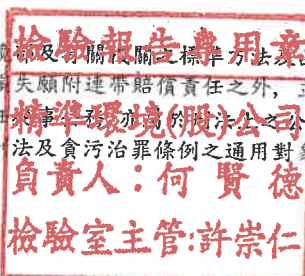 檢驗報告專用章
部及有關機關之標準方法及
失願附連帶賠償責任之外，
精準環境(股)公司
法及貪污治罪條例之通用對象
負責人：何賢德
檢驗室主管:許崇仁